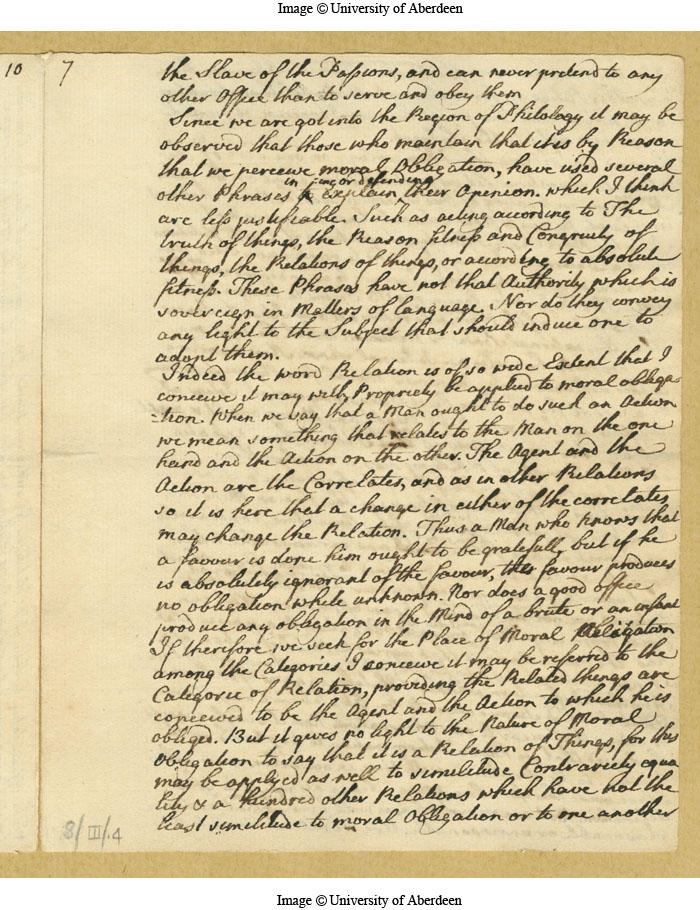 Image © University of Aberdeen
10
7
the Slave of the Passions, and can never pretend to any
other Office than to serve and obey them
Since we are got into the Region of Philology it may be
observed that those who maintain that it is by Reason
that we perceive moral Obligation, have used several
in ing or defending
other Phrases explain their Opinion. which I think
are less justifiable. Such as acting according to The
truth of things, the Reason fitness and Congruity of
things, the Relations of things, or according to absolute
fitness. These Phrases have not that Authority which is
sovereign in Matters of language. Nor do they convey
any light to the Subject that should induce one to
adopt them.
Indeed the word Relation is of so wide Extent that I
conceive it may with Propriety be applied to moral obliga-
=tion. When we say that a Man ought to do such an Action
we mean something that relates to the Man on the one
hand and the Action on the other. The Agent and the
Action are the Correlates, and as in other Relations
so it is here that a change in either of the correlates
may change the Relation. Thus a Man who knows that
a favour is done him ought to be gratefull, but if he
is absolutely ignorant of the favour, the favour produces
no obligation while unknown. Nor does a good office
produce any obligation in the Mind of a brute or an infant
If therefore we seek for the Place of Moral Obligation
among the Categories I conceive it may be referred to the
Categorie of Relation, providing the Related things are
conceived to be the Agent and the Action to which he is
obliged. But it gives no light to the Nature of Moral
Obligation to say that it is a Relation of Things, for this
may be applyed as well to similitude Contrariety equa
lity & a hundred other Relations which have not the
least similitude to moral Obligation or to one another
8/III/.4
Image © University of Aberdeen